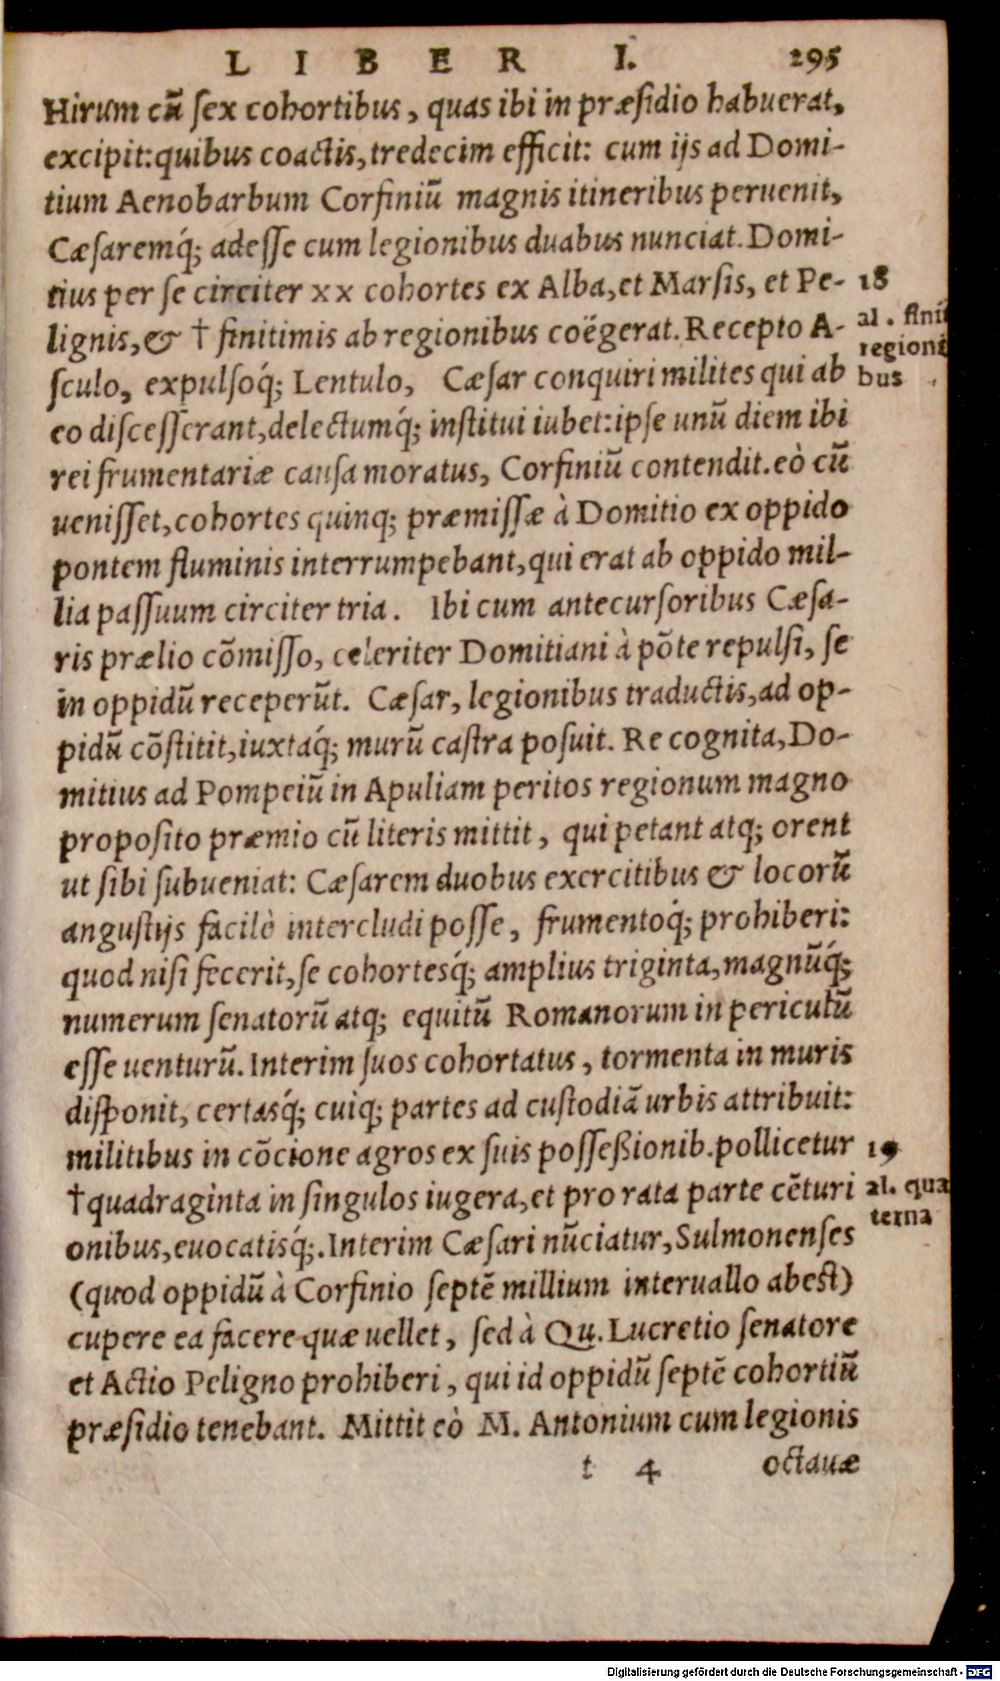 LIBER I. 295
Hirum cū ſex cohortibus, quas ibi in præſidio habuerat,
excipit: quibus coactis, tredecim efficit: cum ijs ad Domi-
tium Aenobarbum Corfiniū magnis itineribus peruenit,
Cæſaremq́; adeſſe cum legionibus duabus nunciat. Domi-
tius per ſe circiter xx cohortes ex Alba, et Marſis, et Pe- 18
lignis, & † finitimis ab regionibus coëgerat. Recepto A- al. fini
ſculo, expulſoq́; Lentulo, Cæſar conquiri milites qui ab regioni
eo diſceſſerant, delectumq́; inſtitui iubet: ipſe unū diem ibi bus
rei frumentariæ cauſa moratus, Corfiniū contendit. eò cū
ueniſſet, cohortes quinq; præmiſſæ à Domitio ex oppido
pontem fluminis interrumpebant, qui erat ab oppido mil-
lia paſſuum circiter tria. Ibi cum antecurſoribus Cæſa-
ris prælio cōmiſſo, celeriter Domitiani à pōte repulſi, ſe
in oppidū receperūt. Cæſar, legionibus traductis, ad op-
pidū cōſtitit, iuxtaq́; murū caſtra poſuit. Re cognita, Do-
mitius ad Pompeiū in Apuliam peritos regionum magno
propoſito præmio cū literis mittit, qui petant atq; orent
ut ſibi ſubueniat: Cæſarem duobus exercitibus & locorū
anguſtijs facilè intercludi poſſe, frumentoq́; prohiberi:
quod niſi fecerit, ſe cohortesq́; amplius triginta, magnūq́;
numerum ſenatorū atq; equitū Romanorum in periculū
eſſe uenturū. Interim ſuos cohortatus, tormenta in muris
diſponit, certasq́; cuiq; partes ad cuſtodiā urbis attribuit:
militibus in cōcione agros ex ſuis poſſeßionib. pollicetur 19
† quadraginta in ſingulos iugera, et pro rata parte cēturi al. qua
onibus, euocatisq́;. Interim Cæſari nūciatur, Sulmonenſes terna
(quod oppidū à Corfinio ſeptē millium interuallo abeſt)
cupere ea facere quæ uellet, ſed à Qu. Lucretio ſenatore
et Actio Peligno prohiberi, qui id oppidū ſeptē cohortiū
præſidio tenebant. Mittit eò M. Antonium cum legionis
t 4 octauæ
Digitalisierung gefördert durch die Deutsche Forschungsgemeinschaft - DFG